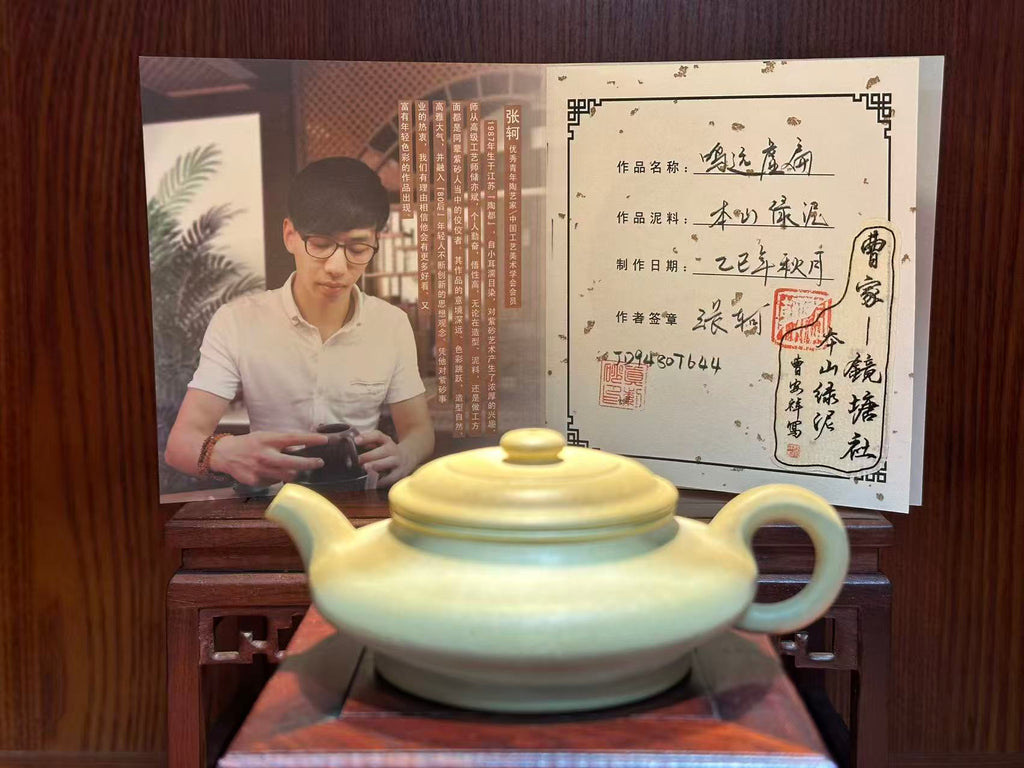 张轲 优秀青年陶艺家/中国工艺美术学会会员
1987年生于江苏「陶都」，自小耳濡目染，对紫砂艺术产生了浓厚的兴趣，
师从高级工艺师储亦斌，个人勤奋、悟性高，无论在造型、泥料、还是做工方
面都是同辈紫砂人当中的佼佼者，其作品的意境深远、色彩跳跃、造型自然、
高雅大气，并融入「80后」年轻人不断创新的思想观念，凭他对紫砂事
业的热衷，我们有理由相信他会有更多好看、又
富有年轻色彩的作品出现。
作品名称：鸣远虚扁
作品泥料：本山绿泥
制作日期：乙巳年秋月
作者签章 张轲
JD94307644
曹家—镜塘社
本山绿泥